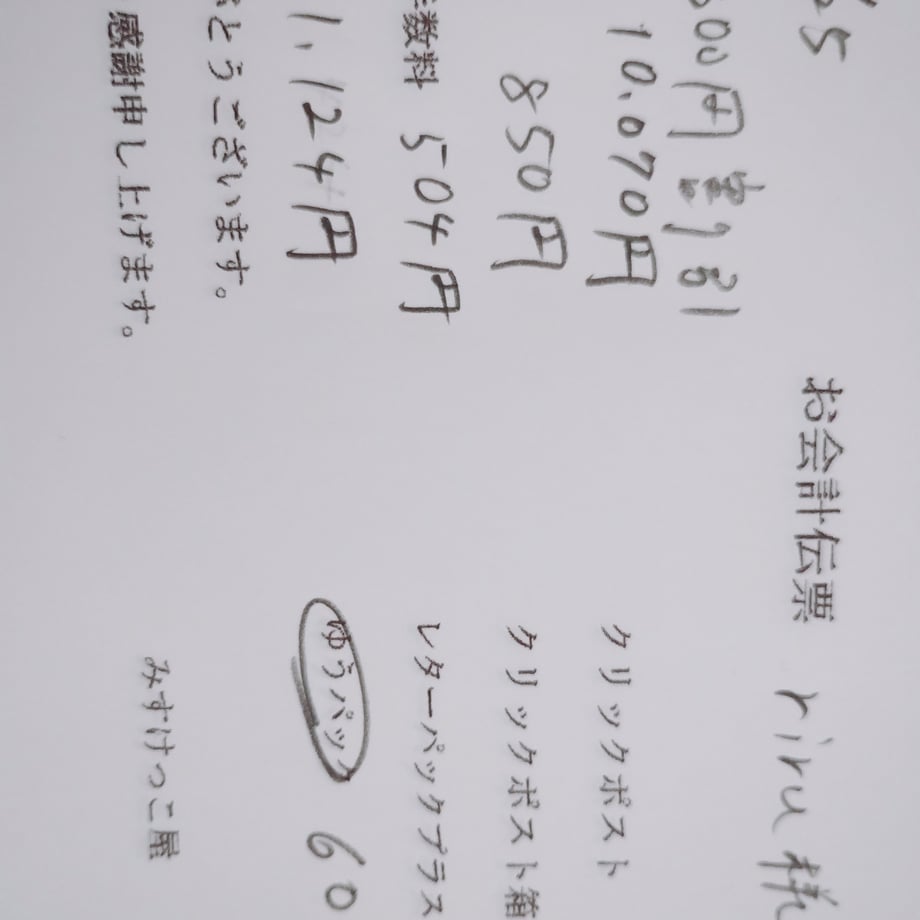 5 お会計伝票 riru様
00円 割引
10.070円 クリックポスト
850円 クリックポスト箱
数料 504円 レターパックプラス
1.124円 ゆうパック 60
とうございます。
感謝申し上げます。 みすけっこ屋